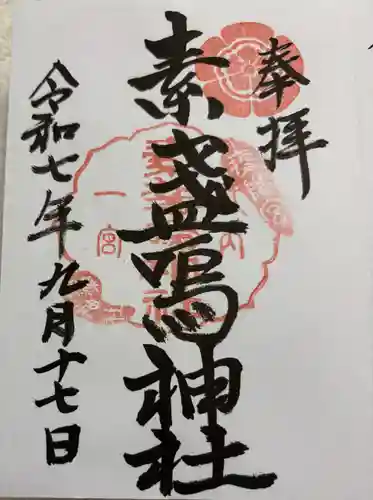 奉拝
素盞鳴神社
令和七年九月十七日
一宮